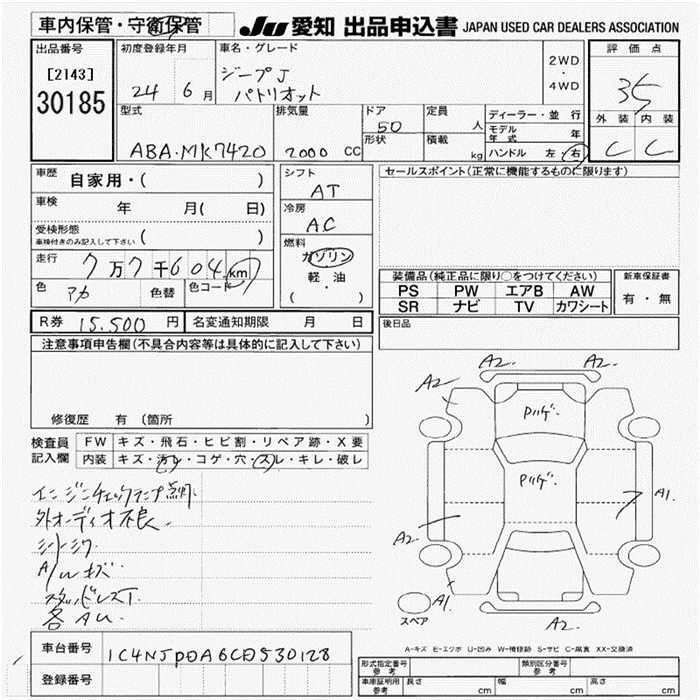 車内保管・守衛保管
JU 愛知 出品申込書 JAPAN USED CAR DEALERS ASSOCIATION
出品番号
[2143]
30185
初度登録年月
24 6月
車名・グレード
ジープJ
パトリオット
2WD
・
4WD
評価点
35
外装 内装
C C
型式
ABA・MK7420
排気量
2000 CC
ドア
5D
形状
定員
人
積載
kg
ディーラー・並行
モデル年式 年
ハンドル 左・右
車歴
自家用・( )
車検
年 月( 日)
受検形態
車検付きのみ記入して下さい ( )
走行
7万7千604 km
色
アカ
色替
色コード
シフト
AT
冷房
AC
燃料
ガソリン
軽・油
( )
セールスポイント(正常に機能するものに限ります)
装備品(純正品に限り○をつけてください)
PS PW エアB AW
SR ナビ TV カワシート
新車保証書
有・無
R券 15,500 円
名変通知期限 月 日
後日品
注意事項申告欄(不具合内容等は具体的に記入して下さい)
修復歴 有 (箇所 )
検査員記入欄
FW キズ・飛石・ヒビ割・リペア跡・X要
内装 キズ・汚レ・コゲ・穴・スレ・キレ・破レ
エンジンチェックランプ点灯
外オーディオ不良
A/Wキズ
スタッドレスT
各AU
A2 A2 A2
Pハゲ
Pハゲ
A1
A2
A1
A2
スペア
A-キズ E-エクボ U-凹み W-補修跡 S-サビ C-腐食 XX-交換済
車台番号
1C4NJPDA6CD530128
登録番号
形式指定番号
参考
類別区分番号
参考
車庫証明用
参考
長さ cm 幅 cm 高さ cm